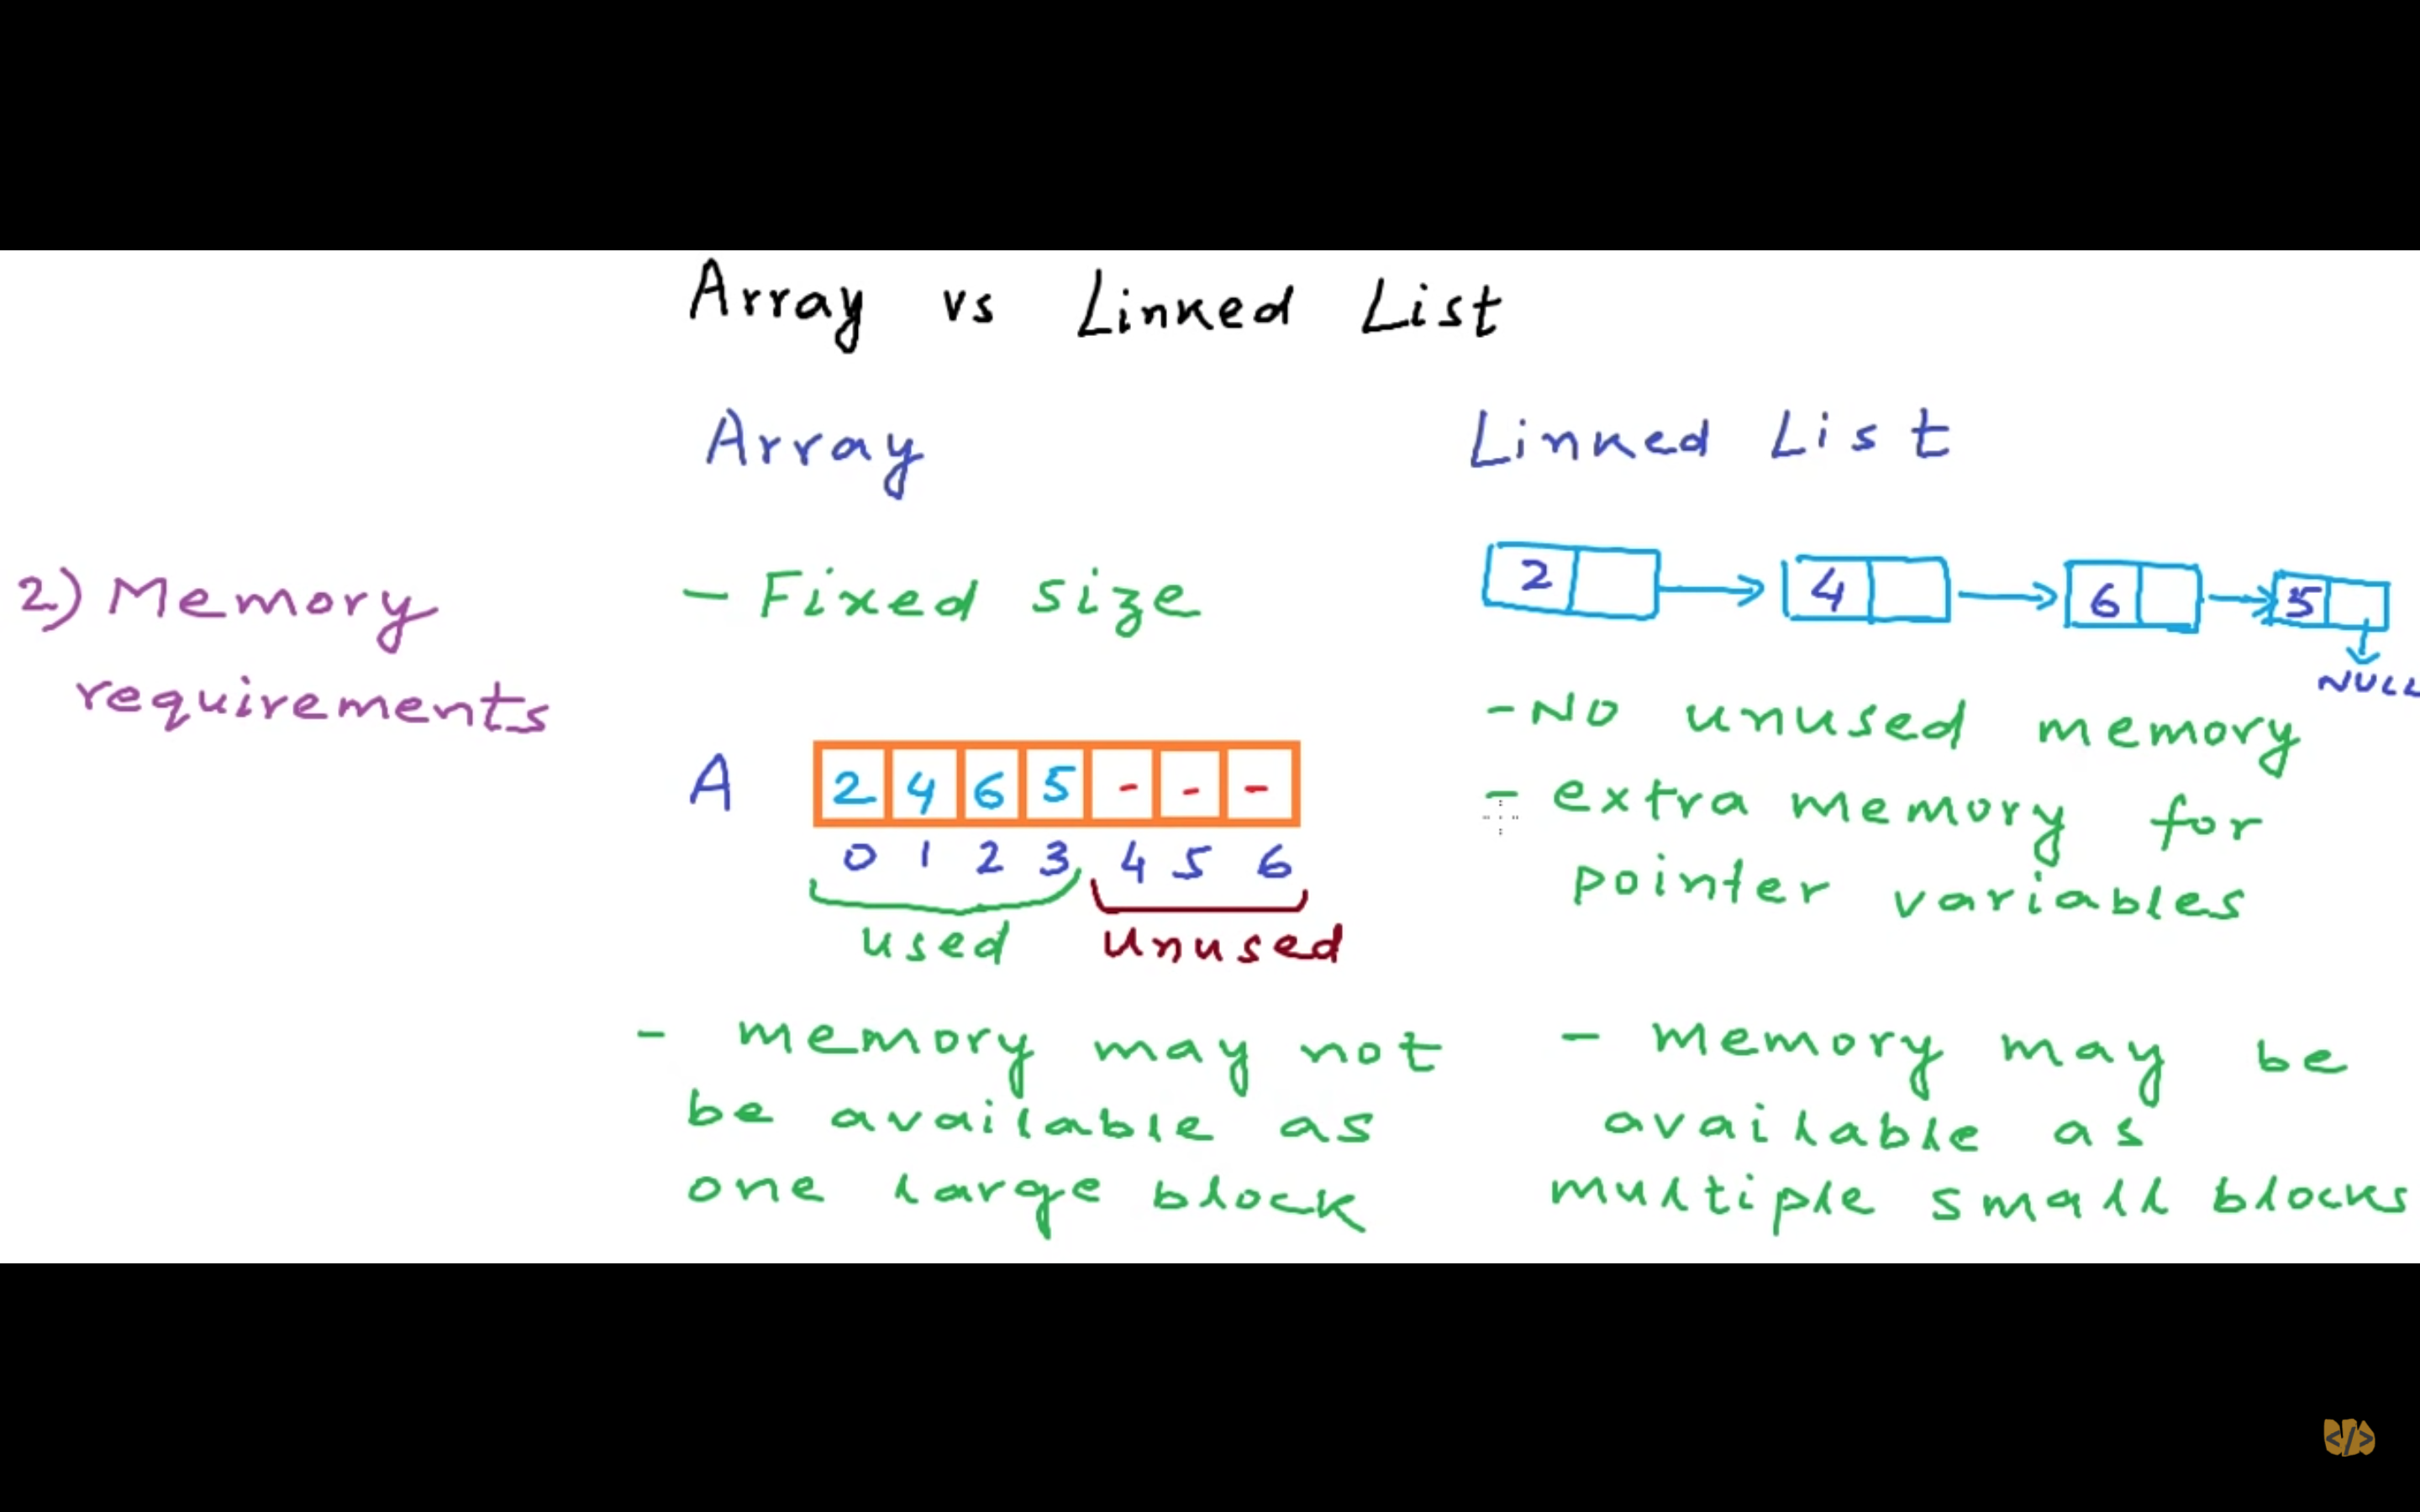 Array vs Linked List
Array
Linked List
2) Memory
requirements
- Fixed size
A
2 4 6 5 - - -
0 1 2 3 4 5 6
used unused
- memory may not
be available as
one large block
2 4 6 5
NULL
- No unused memory
- extra memory for
pointer variables
- memory may be
available as
multiple small blocks
</>